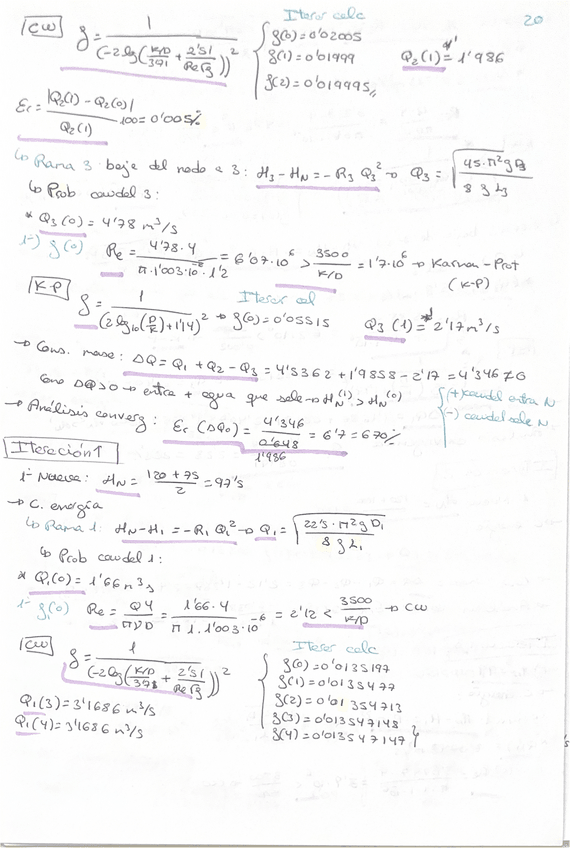 20
Iterar calc
CW f = 1 / (-2 lg((K/D)/3'71 + 2'51/(Re√f)))²
f(0) = 0'02005
f(1) = 0'01999
f(2) = 0'019995,,
Q₂(1) = 1'986
Er = |Q₂(1) - Q₂(0)| / Q₂(1) · 100 = 0'005%
↳ Rama 3 baje del nodo a 3: H₃ - H_N = -R₃ Q₃² → Q₃ = √(45·π²g D₃ / 8 f L₃)
↳ Prob caudal 3:
* Q₃(0) = 4'78 m³/s
1-) f(0) Re = 4'78·4 / π·1'003·10⁻⁶·1'2 = 6'07·10⁶ > 3500/(K/D) = 1'7·10⁶ → Karman-Prot
(K-P)
K-P f = 1 / (2 log₁₀(D/K) + 1'14)² → f(0) = 0'05515
Iterar cal
Q₃(1) = 2'17 m³/s
→ Cons. masa: ΔQ = Q₁ + Q₂ - Q₃ = 4'5362 + 1'9858 - 2'17 = 4'346 ≠ 0
Como ΔQ>0 → entra + agua que sale → H_N⁽¹⁾ > H_N⁽⁰⁾
(+) caudal entra N
(-) caudal sale N
→ Análisis converg: Er(ΔQ₀) = 4'346 / 0'648 = 6'7 = 670%
1'986
Iteración 1
1- Nueva: H_N = 120 + 75 / 2 = 97's
→ C. energía
↳ Rama 1: H_N - H₁ = -R₁ Q₁² → Q₁ = √(22's·π²g D₁ / 8 f L₁)
↳ Prob caudal 1:
* Q₁(0) = 1'66 m³/s
1- f(0) Re = Q4 / πνD = 1'66·4 / π 1·1'003·10⁻⁶ = 2'12 < 3500/(K/D) → CW
CW f = 1 / (-2 lg((K/D)/3'71 + 2'51/(Re√f)))²
Iterar calc
f(0) = 0'0135197
f(1) = 0'0135477
f(2) = 0'01354713
f(3) = 0'013547148
f(4) = 0'013547147
Q₁(3) = 3'1686 m³/s
Q₁(4) = 3'1686 m³/s